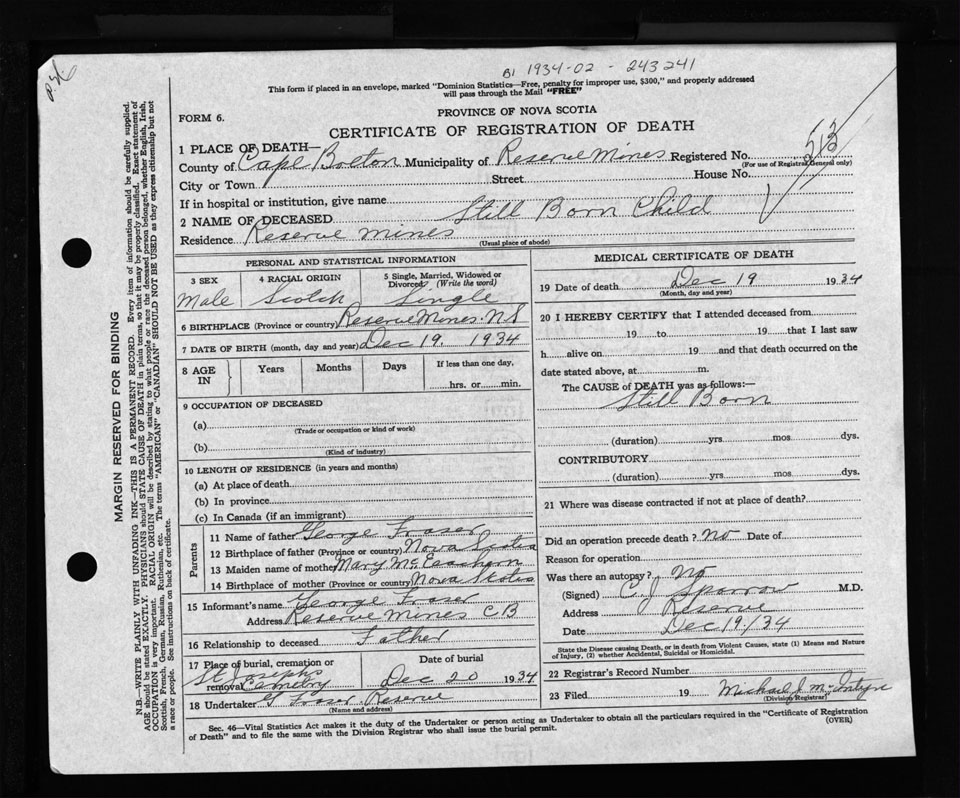 B1 1934-02- 243241
This form if placed in an envelope, marked "Dominion Statistics—Free, penalty for improper use, $300," and properly addressed
will pass through the Mail "FREE"
PROVINCE OF NOVA SCOTIA
FORM 6.
CERTIFICATE OF REGISTRATION OF DEATH
513
1 PLACE OF DEATH—
County of Cape Breton Municipality of Reserve Mines Registered No.
(For use of Registrar General only)
City or Town Street House No.
If in hospital or institution, give name
2 NAME OF DECEASED Still Born Child
Residence Reserve Mines
(Usual place of abode)
PERSONAL AND STATISTICAL INFORMATION
3 SEX 4 RACIAL ORIGIN 5 Single, Married, Widowed or
Divorced. (Write the word)
Male Scotch Single
6 BIRTHPLACE (Province or country) Reserve Mines. N.S
7 DATE OF BIRTH (month, day and year) Dec 19. 1934
8 AGE IN Years Months Days If less than one day,
hrs. or min.
9 OCCUPATION OF DECEASED
(a)
(Trade or occupation or kind of work)
(b)
(Kind of industry)
10 LENGTH OF RESIDENCE (in years and months)
(a) At place of death
(b) In province
(c) In Canada (if an immigrant)
Parents
11 Name of father George Fraser
12 Birthplace of father (Province or country) Nova Scotia
13 Maiden name of mother Mary McEachern
14 Birthplace of mother (Province or country) Nova Scotia
15 Informant's name George Fraser
Address Reserve Mines C.B
16 Relationship to deceased Father
17 Place of burial, cremation or removal St Josephs Cemetry
Date of burial
Dec 20 1934
18 Undertaker Fraser Reserve
(Name and address)
MEDICAL CERTIFICATE OF DEATH
19 Date of death Dec 19 1934
(Month, day and year)
20 I HEREBY CERTIFY that I attended deceased from
19 to 19 that I last saw
h alive on 19 and that death occurred on the
date stated above, at m.
The CAUSE of DEATH was as follows:—
Still Born
(duration) yrs mos dys.
CONTRIBUTORY
(duration) yrs. mos. dys.
21 Where was disease contracted if not at place of death?
Did an operation precede death? No Date of
Reason for operation
Was there an autopsy? No
(Signed) C. J Sparrow M.D.
Address Reserve
Date Dec 19/34
State the Disease causing Death, or in death from Violent Causes, state (1) Means and Nature
of Injury, (2) whether Accidental, Suicidal or Homicidal.
22 Registrar's Record Number
23 Filed 19 Michael J. McIntyre
(Division Registrar)
Sec. 46—Vital Statistics Act makes it the duty of the Undertaker or person acting as Undertaker to obtain all the particulars required in the "Certificate of Registration
of Death" and to file the same with the Division Registrar who shall issue the burial permit.
(OVER)
MARGIN RESERVED FOR BINDING
N.B.—WRITE PLAINLY WITH UNFADING INK—THIS IS A PERMANENT RECORD. Every item of information should be carefully supplied.
AGE should be stated EXACTLY. PHYSICIANS should STATE CAUSE OF DEATH in plain terms, so that it may be properly classified. Exact statement of
OCCUPATION is very important. RACIAL ORIGIN will be described by stating to what people or race the deceased person belonged, whether English, Irish,
Scottish, French, German, Russian, Ruthenian, etc. The terms "AMERICAN" or "CANADIAN" SHOULD NOT BE USED as they express citizenship but not
a race or people. See instructions on back of certificate.